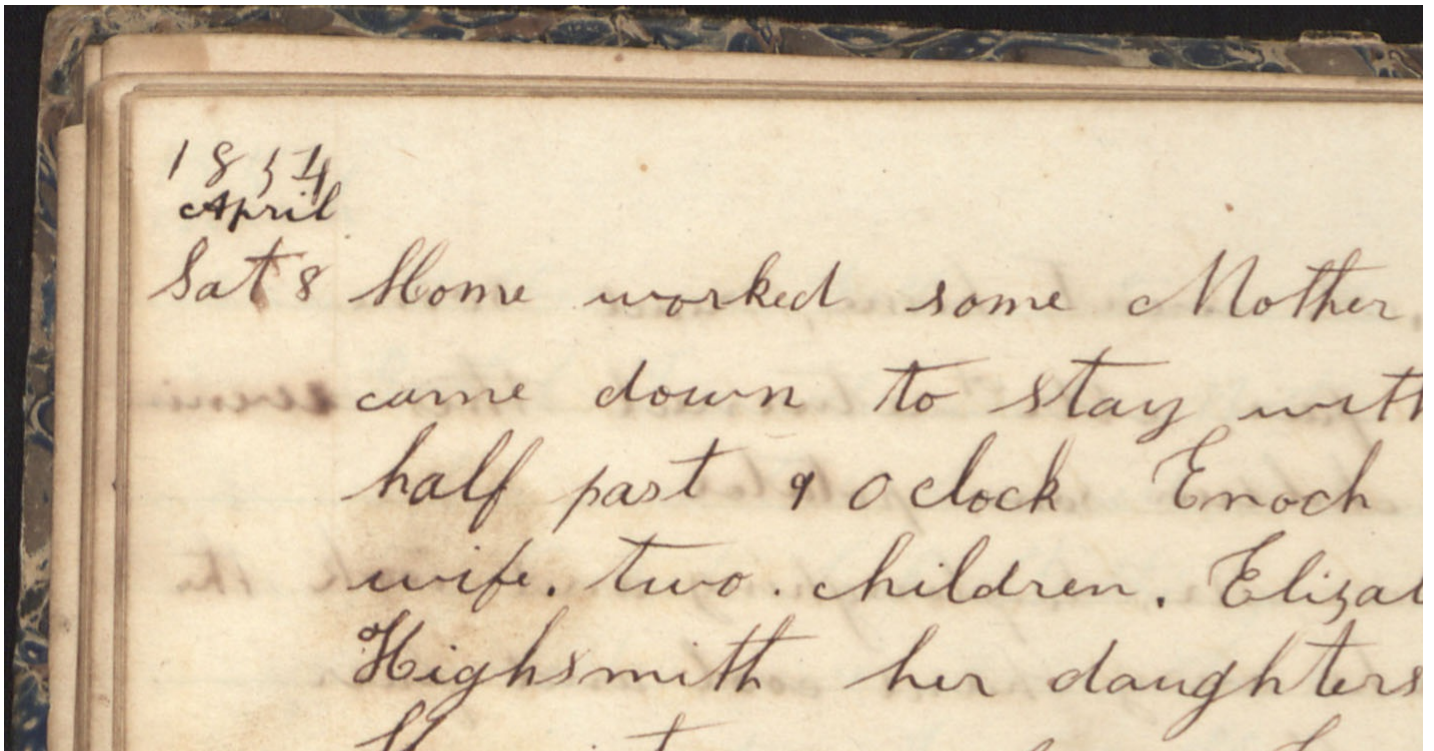 1854
April
Sat 8 Home worked some Mother.
came down to stay with
half past 9 O clock Enoch
wife. two. children. Elizab
Highsmith her daughters